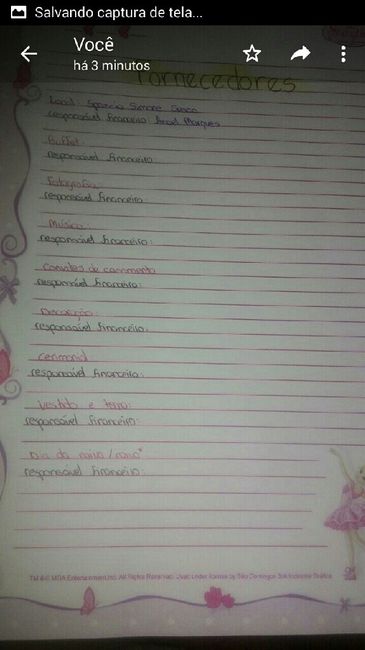 Salvando captura de tela...
Você
há 3 minutos
Fornecedores
Local: Sonora
responsável financeiro: Marques
Buffet:
responsável financeiro:
Fotografia:
responsável financeiro:
Música:
responsável financeiro:
Convites de casamento
responsável financeiro:
Decoração:
responsável financeiro:
Cerimonial
responsável financeiro:
Vestido e terno:
responsável financeiro:
Dia da noiva/noivo*
responsável financeiro:
TM & © MGA Entertainment, Inc. All Rights Reserved. Used under license by São Domingos S/A Indústria Gráfica